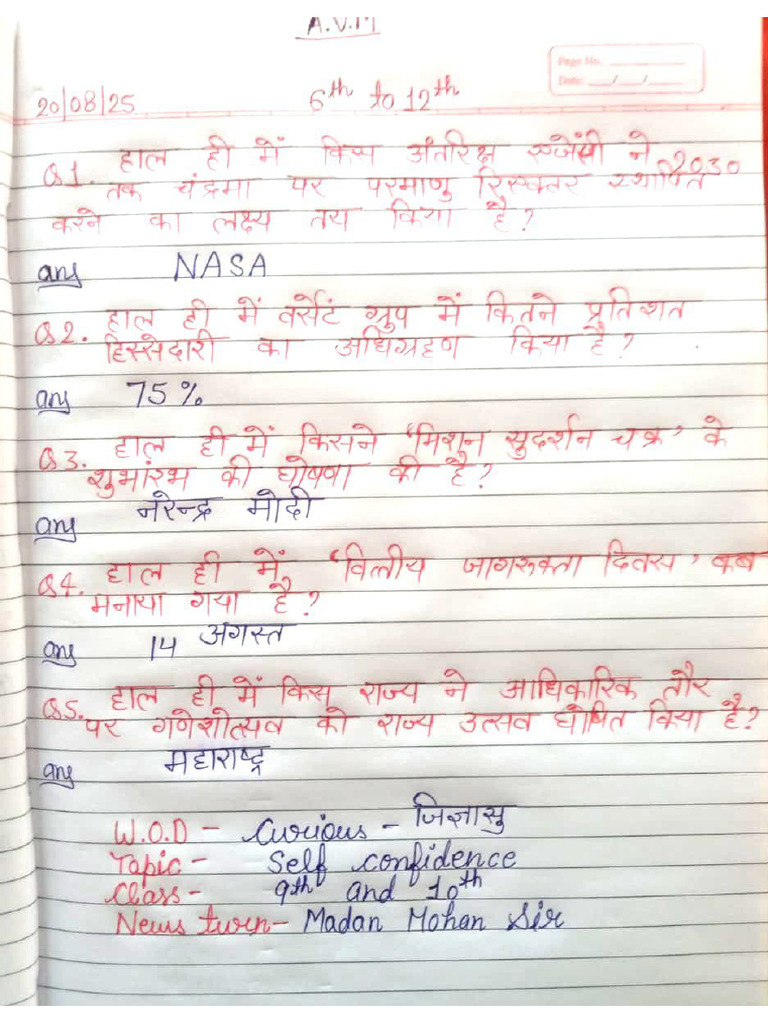 A.V.M
Page No.
Date: __/__/__
20/08/25 6th to 12th
Q1. हाल ही में किस अंतरिक्ष एजेंसी ने 2030
तक चंद्रमा पर परमाणु रिएक्टर स्थापित
करने का लक्ष्य तय किया है?
ans NASA
Q2. हाल ही में वर्सेंट ग्रुप में कितने प्रतिशत
हिस्सेदारी का अधिग्रहण किया है?
ans 75%
Q3. हाल ही में किसने 'मिशन सुदर्शन चक्र' के
शुभारंभ की घोषणा की है?
ans नरेन्द्र मोदी
Q4. हाल ही में 'वित्तीय जागरूकता दिवस' कब
मनाया गया है?
ans 14 अगस्त
Q5. हाल ही में किस राज्य ने आधिकारिक तौर
पर गणेशोत्सव को राज्य उत्सव घोषित किया है?
ans महाराष्ट्र
W.O.D - Curious - जिज्ञासु
Topic - Self confidence
Class - 9th and 10th
News turn - Madan Mohan Sir